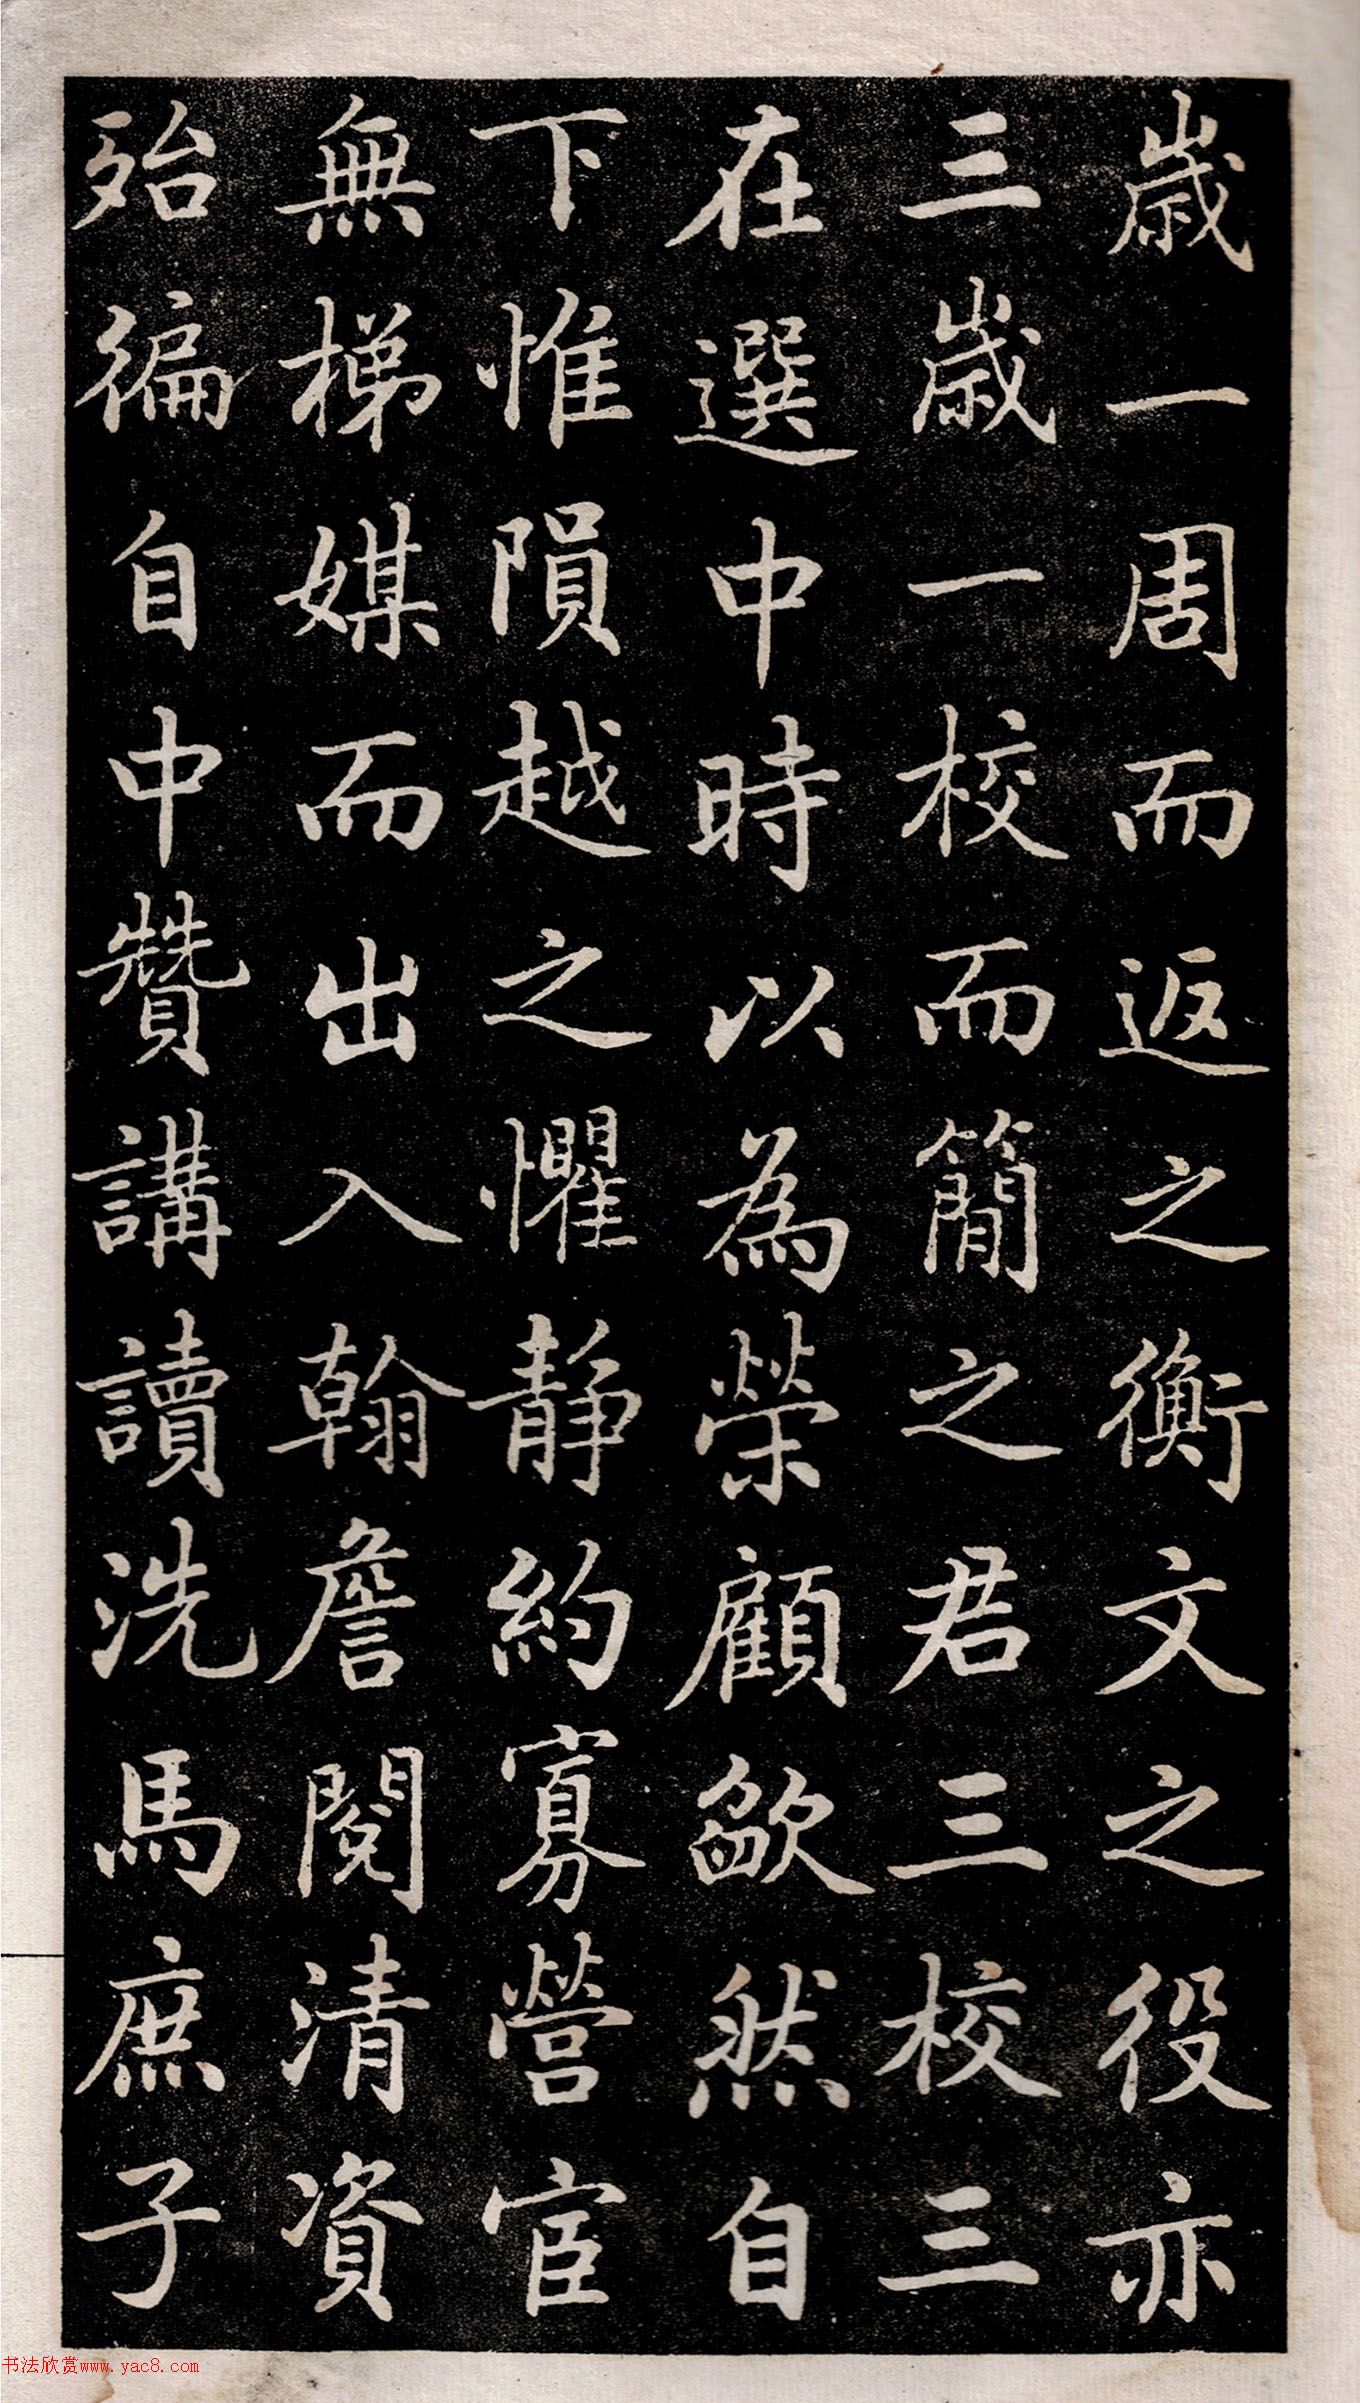 歲一周而返之衡文之役亦
三歲一校而簡之君三校三
在選中時以為榮顧歙然自
下惟隕越之懼静約寡營宦
無梯媒而出入翰詹閱清資
殆徧自中贊講讀洗馬庶子
书法欣赏www.yac8.com